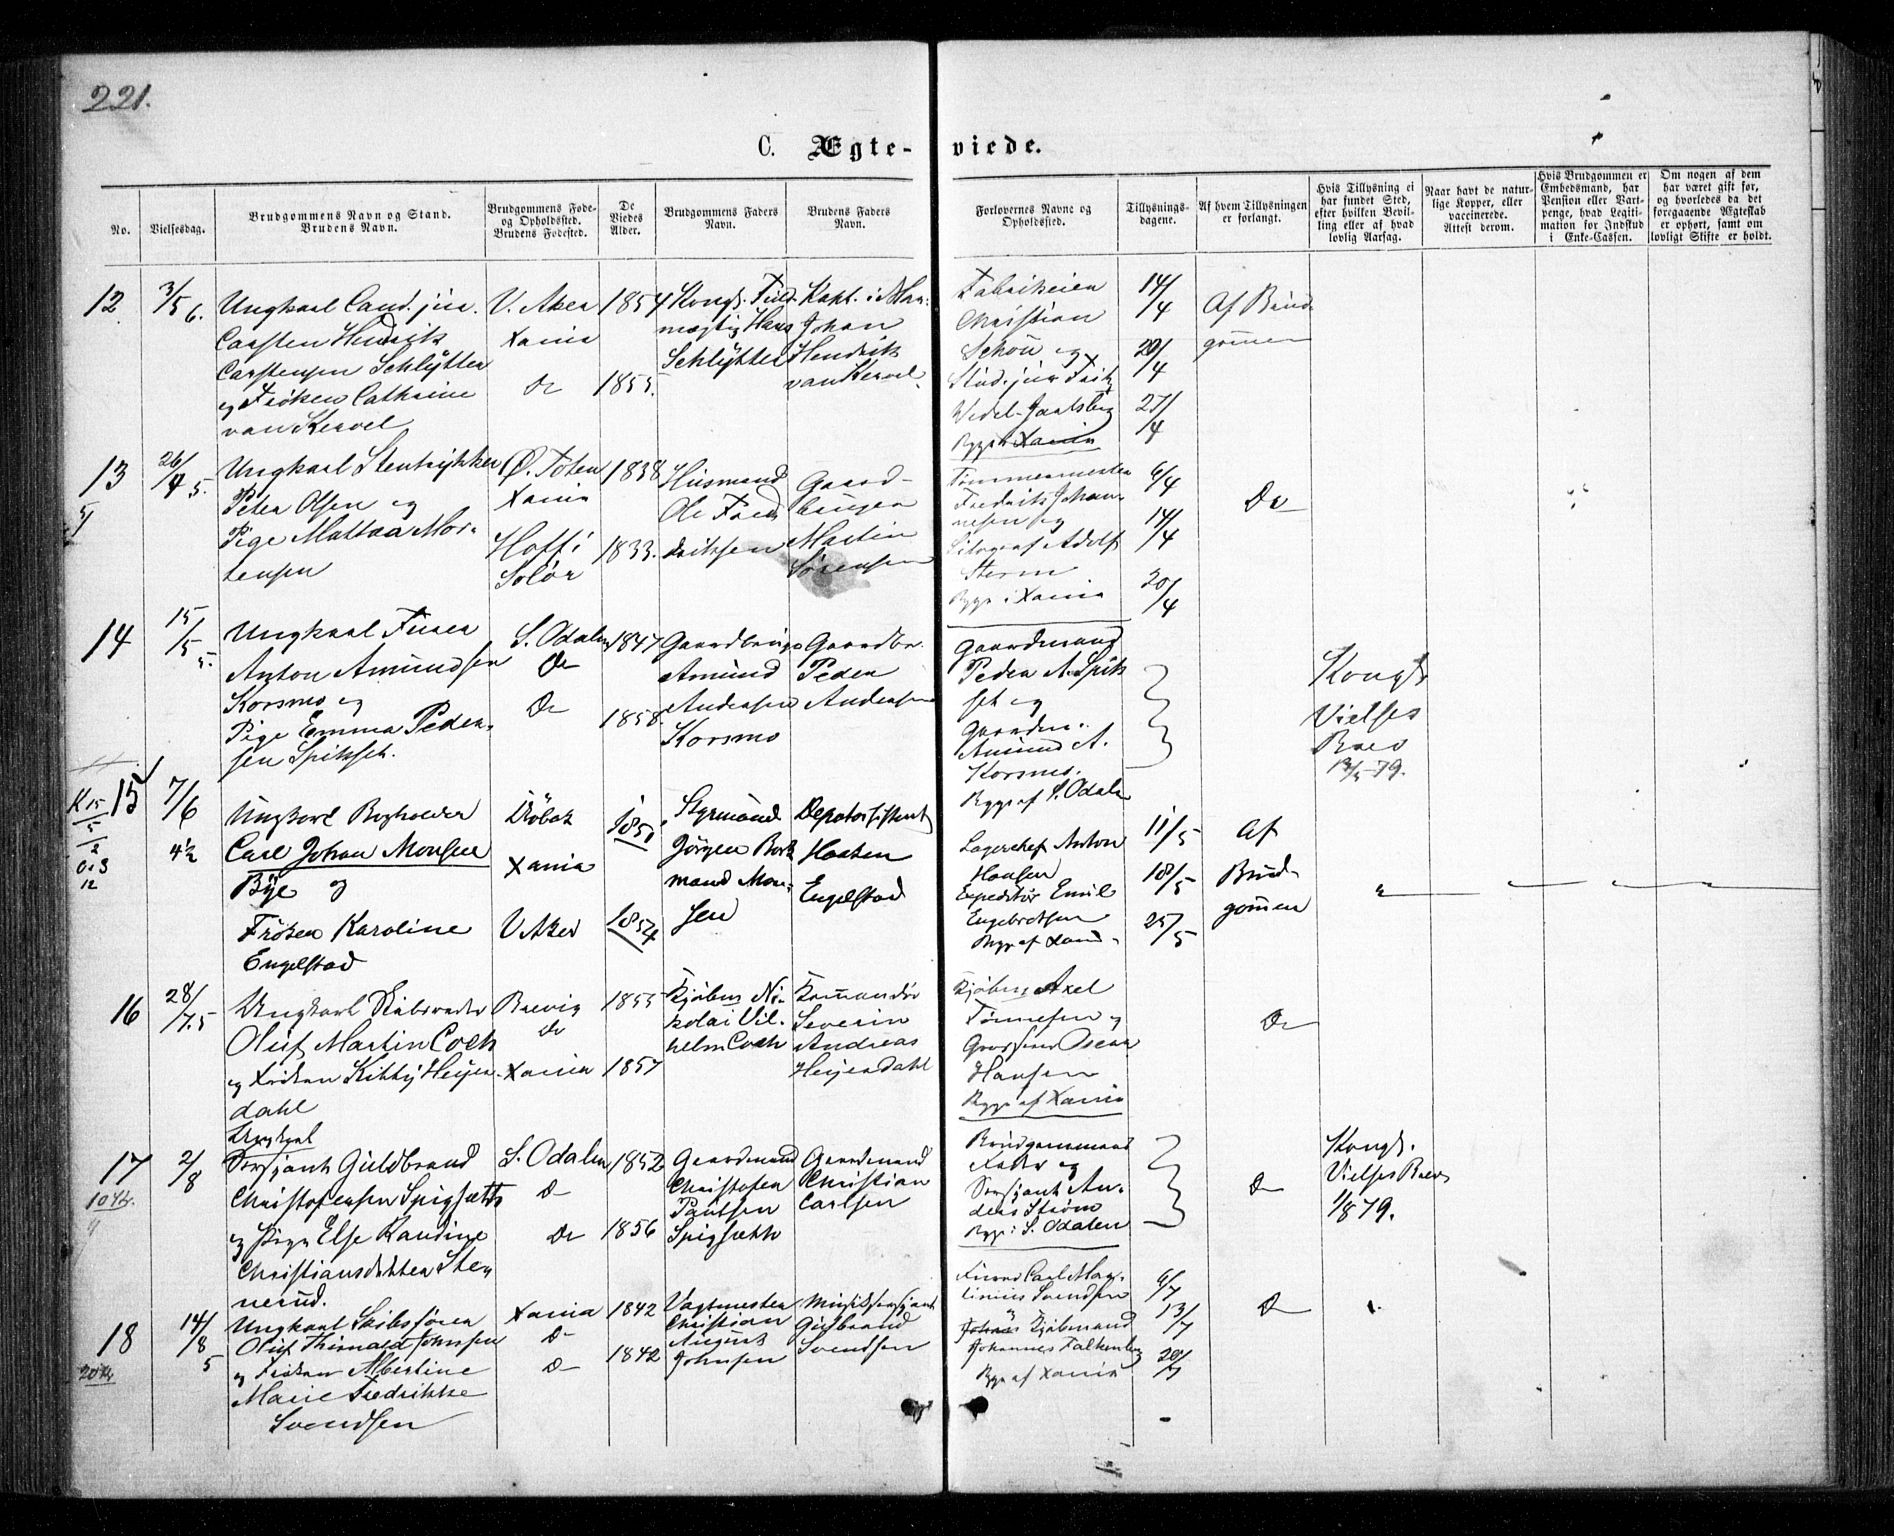 221.
C. Ægte-viede.
No.
Vielsesdag.
Brudgommens Navn og Stand.
Brudens Navn.
Brudgommens Føde-
og Opholdssted.
Brudens Fødested.
De
Viedes
Alder.
Brudgommens Faders
Navn.
Brudens Faders
Navn.
Forlovernes Navne og
Opholdssted.
Tillysnings-
dagene.
Af hvem Tillysningen
er forlangt.
Hvis Tillysning ei
har fundet Sted,
efter hvilken Bevil-
ling eller af hvad
lovlig Aarsag.
Naar havt de natur-
lige Kopper, eller
vaccinerede.
Attest derom.
Hvis Brudgommen er
Embedsmand, har
Pension eller Vart-
penge, hvad Legiti-
mation for Indskud
i Enke-Cassen.
Om nogen af dem
har været gift før,
og hvorledes da det
foregaaende Ægteskab
er ophørt, samt om
lovligt Skifte er holdt.
12
3/5 6.
Ungkarl Cand. jur.
Carsten Hendrik
Carstensen Schlytter
og Frøken Cathrine
van Kervel
V. Aker
Xania
Do
1854
1855.
Kongs. Fuld-
mægtig Hans
Schlytter
Kapt. i Mar:
Johan
Hendrik
van Kervel.
Fabrikeier
Christian
Schou og
Stud. jur Fritz
Wedel-Jarlsberg
Bygs i Xania
14/4
20/4
27/4
Af Brud-
gommen
13
26/4 5.
Ungkarl Stentrykker
Peter Olsen og
Pige Mattea Mor-
tensen
Ø. Toten
Xania
Hoff i
Solør
1838
1833.
Husmand
Ole Fred-
riksen
Gaard-
bruger
Martin
Sørensen
Tømmermester
Fredrik Johan-
nesen og
Litograf Adolf
Sterm
Bygs i Xania
6/4
14/4
20/4
Do
14
15/5 5.
Ungkarl Furer
Anton Amundsen
Korsmo og
Pige Emma Peder-
sen Spikset.
S. Odalen
Do
Do
1847
1858.
Gaardbruger
Amund
Andersen
Korsmo
Gaardbr.
Peder
Andersen
Gaardmand
Peder A. Spik
set og
Gaardm.
Amund A.
Korsmo.
Bygs af S. Odalen
Kongs
Vielses
Brev
13/5 79.
15
K 15/5
7/6
4½
Ungkarl Bogholder
Carl Johan Monsen
Bye og
Frøken Karoline
Engelstad
Drøbak
Xania
V. Aker
1850
1854
Styrmand
Jørgen Bork
mand Mon-
sen
Depotassistent
Haaken
Engelstad
Lagerchef Anton
Hansen
Expeditør Emil
Engebretsen
Bygs af Xania
11/5
18/5
25/5
Af
Brud-
gommen
16
28/7. 5
Ungkarl Skibsreder
Oluf Martin Coch
og Frøken Kitty Heyer-
dahl
Brevig
Do
Xania
1855
1857
Kjøbm. Ni-
kolai Vil-
helm Coch
Komandør
Severin
Andreas
Heyerdahl
Kjøbm. Axel
Tønnesen og
Grosserer Oscar
Hansen
Bygs af Xania
Do
17
2/8
Ungkarl
Sersjant Guldbrand
Christofersen Spigseth
og Pige Else Randine
Christiansdatter Ste-
nerud.
S. Odalen
Do
Do
1852
1856
Gaardmand
Christofer
Paulsen
Spigseth
Gaardmand
Christian
Carlsen
Brudgommens
Fader og
Sersjant An-
ders Strøm
Bygs i S. Odalen
Do
Kongs.
Vielses Brev
1/8 79.
18
14/8
5
Ungkarl Skibsfører
Oluf Thinvald Johnsen
og Frøken Albertine
Marie Fredrikke
Svendsen
Xania
Do
Do
1842
1842
Vagtmester
Christian
August
Johnsen
Musiksersjant
Gulbrand
Svendsen
Furer Carl Mar-
tinius Svendsen
Kjøbmand
Johannes Falkenberg
Bygs af Xania
6/7
13/7
20/7
Do